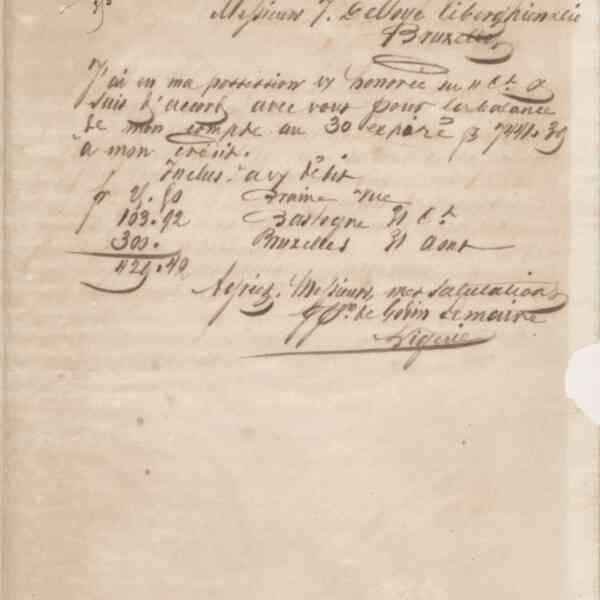 Messieurs J. DeNoye Tiberghien & Cie
Bruxelles
J'ai en ma possession vy honorée du 11 Ct &
suis d'accord avec vous pour la balance
de mon compte au 30 expiré
à mon crédit.
Inclus à vy débit
fr 25.50 Braine vue
103.92 Bastogne 31 Ct
300. Bruxelles 31 Aout
429.42
Agréez, Messieurs, mes salutations
ppon de Godin Lemaire